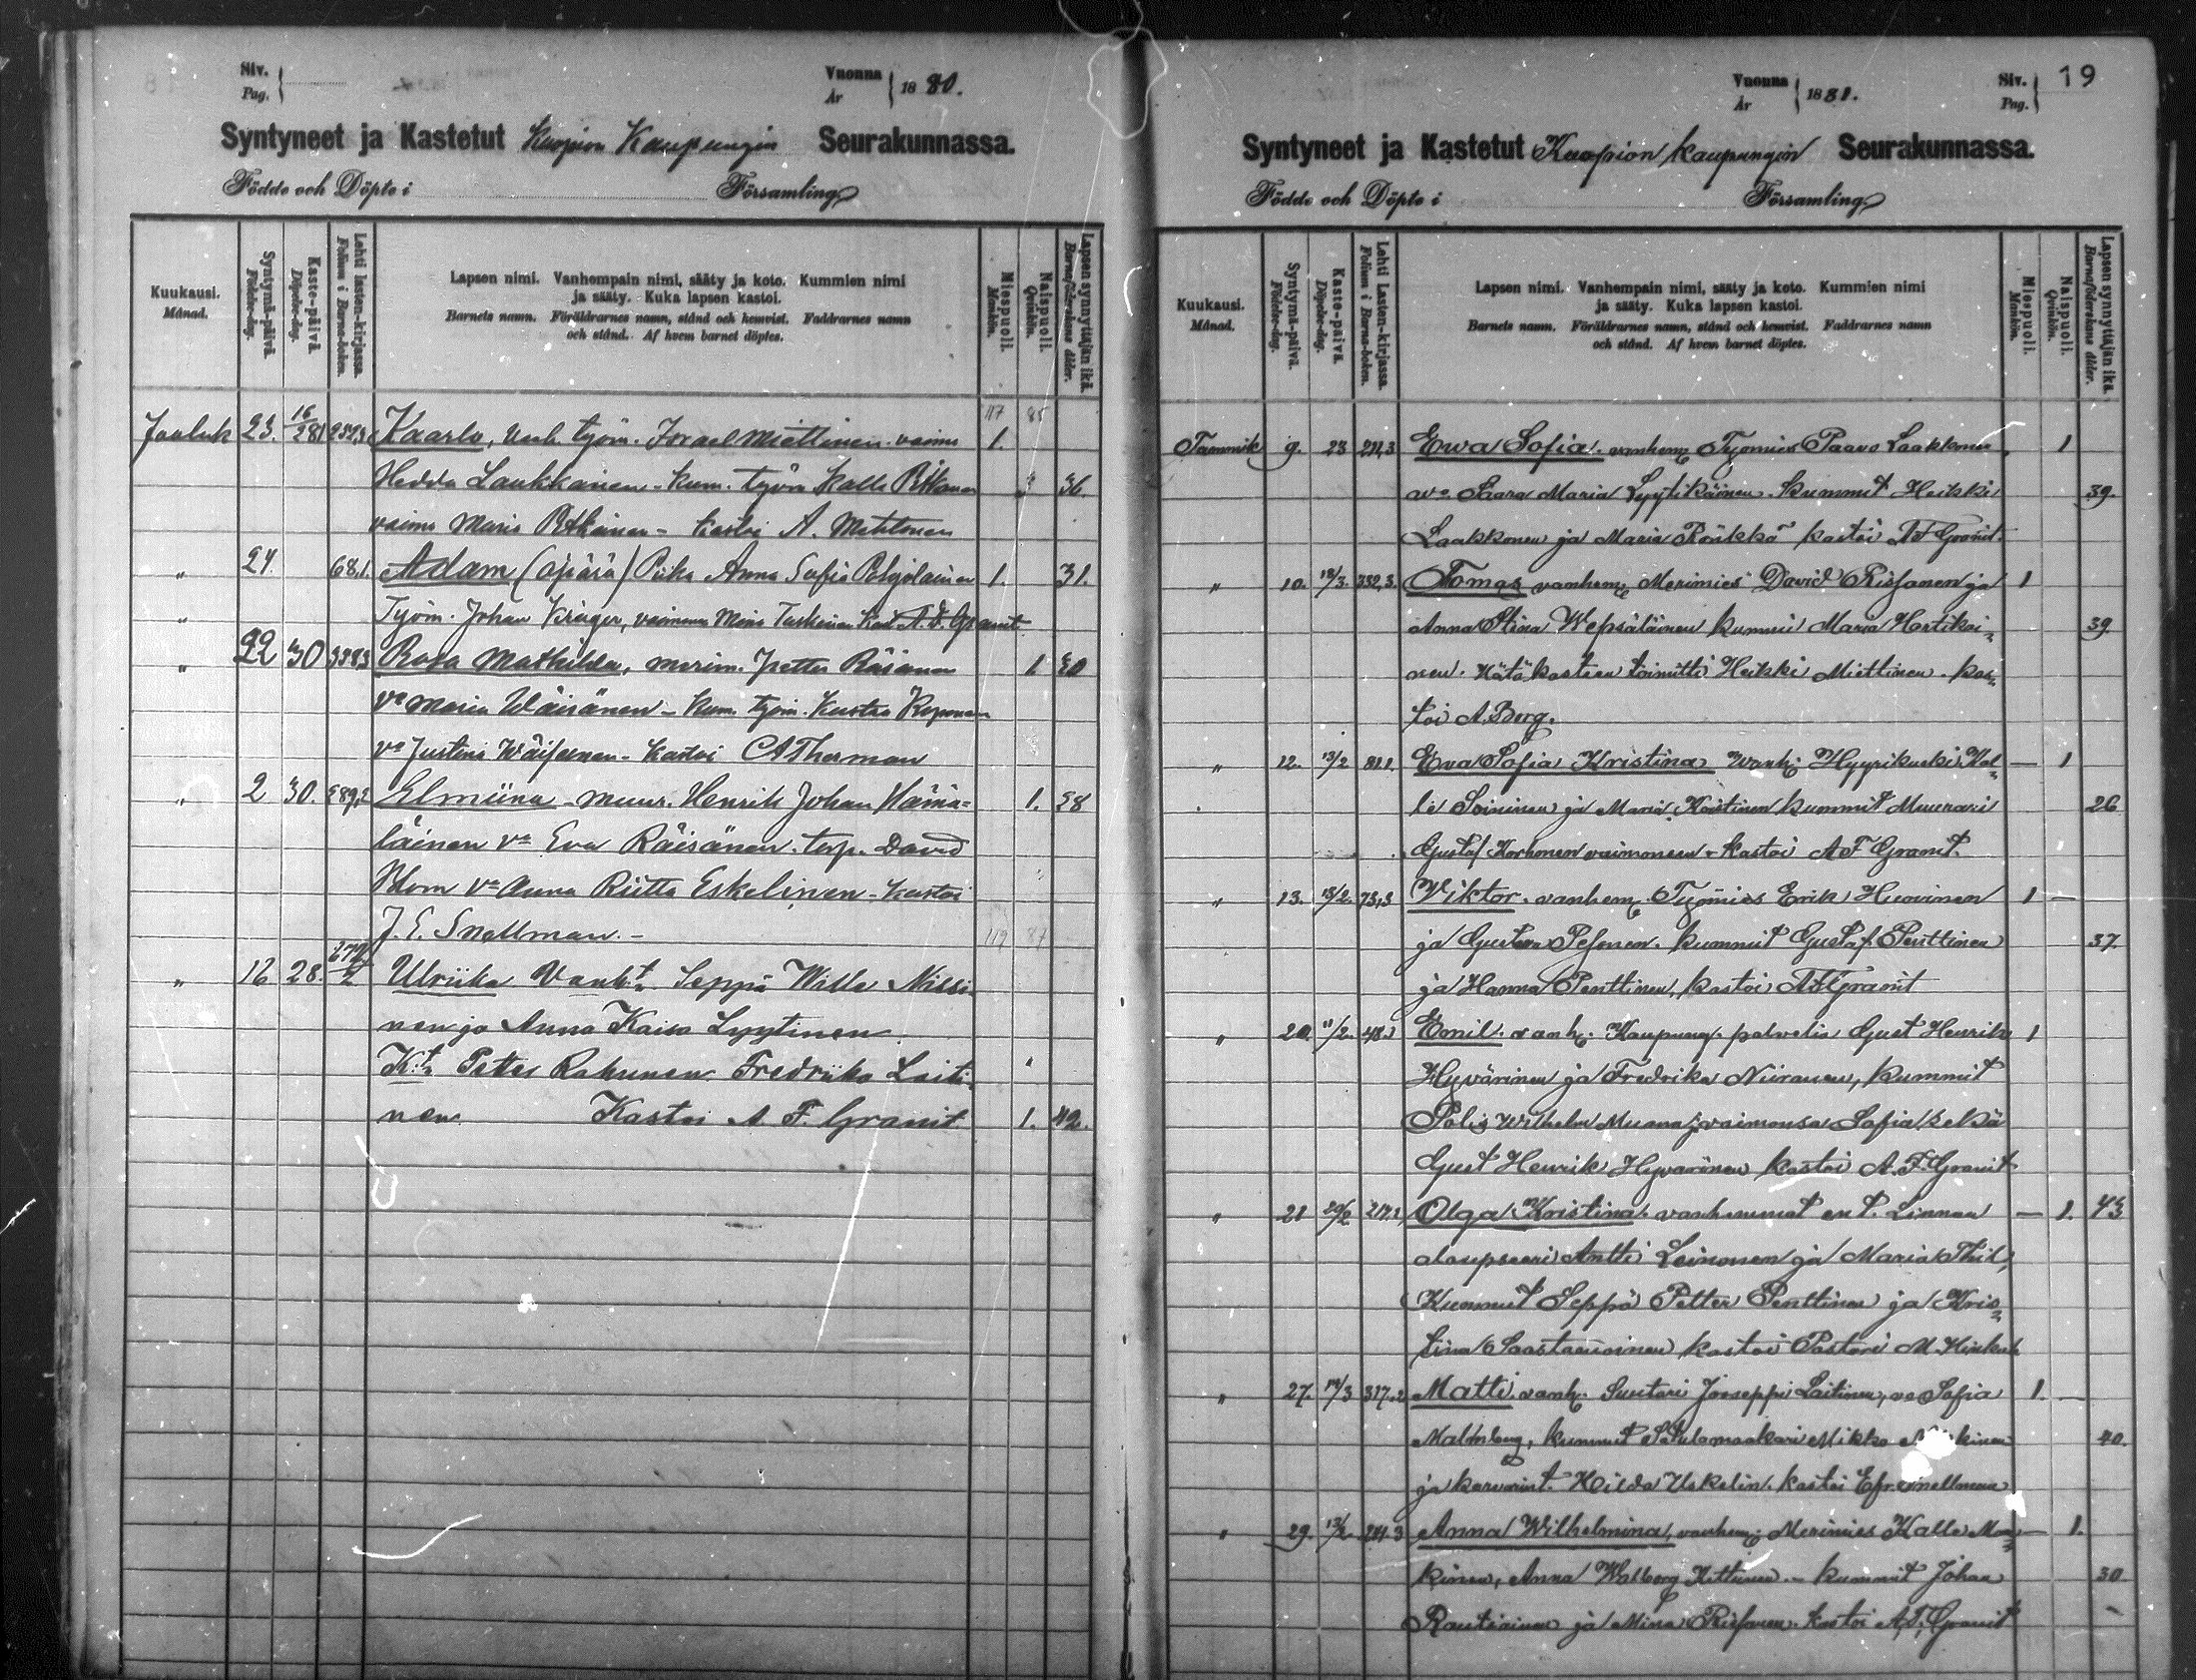 Siv.
Pag.
Vuonna
År
1880.
Syntyneet ja Kastetut Kuopion Kaupungin Seurakunnassa.
Födde och Döpte i Församling
Kuukausi.
Månad.
Syntymä-päivä.
Födelse-dag.
Kaste-päivä.
Döpelse-dag.
Lehti lasten-kirjassa.
Folium i Barna-boken.
Lapsen nimi. Vanhempain nimi, sääty ja koto. Kummien nimi
ja sääty. Kuka lapsen kastoi.
Barnets namn. Föräldrarnes namn, stånd och hemvist. Faddrarnes namn
och stånd. Af hvem barnet döptes.
Miespuoli.
Mankön.
Naispuoli.
Qvinkön.
Lapsen synnyttäjän ikä.
Barnaföderskans ålder.
117 85
Jouluk 23. 16/2 81 Kaarlo, vanh. työm. Israel Miettinen vaimo 1.
Hedda Laukkanen - kum. työm Kalle Pitkänen 36
vaimo Maria Pitkänen - kastoi A. Mehtonen
„ 24. 68,1. Adam (äpärä) Piika Anna Sofia Pohjolainen 1. 31.
„ Työm. Johan Krüger, vaimonsa Mina Taskinen Kast. A. F. Granit
„ 22 30 Rosa Mathilda, merim. Petter Räsänen 1
va Maria Wäisänen - Kum. työm. Kustaa Koponen
va Justina Wäisänen - kastoi C A Therman
„ 2 30. Elmiina - muur. Henrik Johan Hämä=
läinen va Eva Räisänen. torp. David
Blom va Anna Riitta Eskelinen - kastoi
J. E. Snellman. - 119 87
„ 16 28. Ulriika Vanht. Seppä Wille Nissi-
nen ja Anna Kaisa Lyytinen
Kt. Petter Rahunen Fredriika Laiti-
nen. Kastoi A. F. Granit 1. 42.
Vuonna
År
1881.
Siv.
Pag.
19
Syntyneet ja Kastetut Kuopion kaupungin Seurakunnassa.
Födde och Döpte i Församling
Kuukausi.
Månad.
Syntymä-päivä.
Födelse-dag.
Kaste-päivä.
Döpelse-dag.
Lehti Lasten-kirjassa.
Folium i Barna-boken.
Lapsen nimi. Vanhempain nimi, sääty ja koto. Kummien nimi
ja sääty. Kuka lapsen kastoi.
Barnets namn. Föräldrarnes namn, stånd och hemvist. Faddrarnes namn
och stånd. Af hvem barnet döptes.
Miespuoli.
Mankön.
Naispuoli.
Qvinkön.
Lapsen synnyttäjän ikä.
Barnaföderskans ålder.
Tammik 9. 23 Ewa Sofia. vanhem. Työmies Paavo Laakkonen 1
va. Saara Maria Lyytikäinen. Kummit Heikki 39.
Laakkonen ja Maria Rönkkö kastoi A F Granit.
„ 10. 332,3. Tomas vanhem. Merimies David Rissanen ja 1
Anna Stina Wepsäläinen kummi Maria Hartikai- 39
nen. Hätäkasteen toimitti Heikki Miettinen. kas-
toi A. Berg.
„ 12. 13/2 Eva Sofia Kristina vanh. Hyyrikuski Kal- — 1
le Soininen ja Maria Kastinen kummit Muurari 26
Gustaf Korhonen vaimoneen. kastoi A F Granit.
„ 13. 13/2. 73,3 Wiktor. vanhem. Työmies Erik Huovinen 1 —
ja Gustava Pesonen. kummit Gustaf Penttinen 37.
ja Hanna Penttinen, kastoi A F Granit
„ 20. Emil. vanh. Kaupung. palvelia Gust Henrik 1
Hyvärinen ja Fredrika Niiranen, kummit
Polis Wilhelm ja vaimonsa Sofia sekä
Gust Henrik Hyvärinen kastoi A. F. Granit
„ 21 20/2 Olga Kristina. vanhemmat ent. Linnan — 1. 43
aloupseeri Antti Leinonen ja Maria Thil,
Kummit Seppä Petter Penttinen ja Kris-
tina Saastamoinen kastoi Pastori M.
„ 27. 317,2 Matti. vanh. Suutari Jooseppi Laitinen, va Sofia 1. —
Malmberg, kummit Satulamaakari Mikko 40.
ja karvarint. Hilda Uskelin. kastoi Efr. Snellman
„ 29. 13/2 Anna Wilhelmina, vanhem. Merimies Kalle — 1.
kinen, Anna Walborg Kettunen. - kummit Johan 30
Rautiainen ja Mina Rissanen. kastoi A. F. Granit